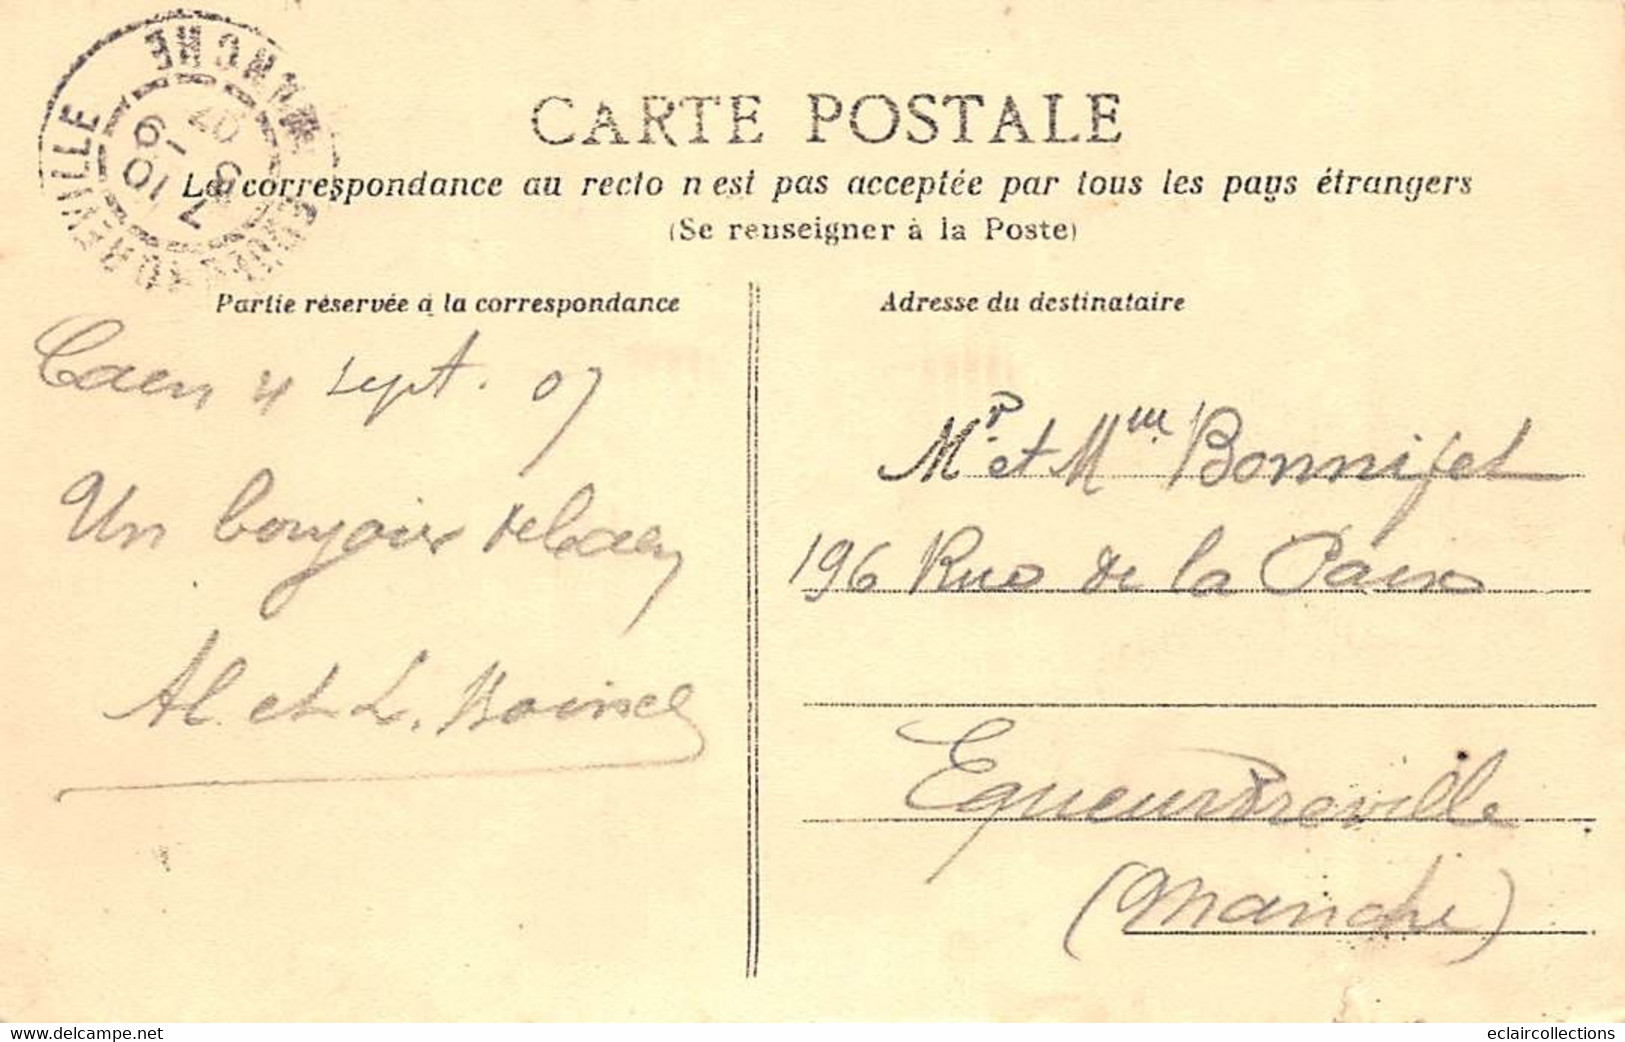 CARTE POSTALE
La correspondance au recto n'est pas acceptée par tous les pays étrangers
(Se renseigner à la Poste)
Partie réservée à la correspondance
Adresse du destinataire
EQUEURDREVILLE MANCHE
7 10 -9 07
Caen 4 Sept. 07
Un bonjour de Caen
Al. et L.
Mr et Mme Bonnifet
196 Rue de la Paix
Equeurdreville
(Manche)
delcampe.net
eclaircollections